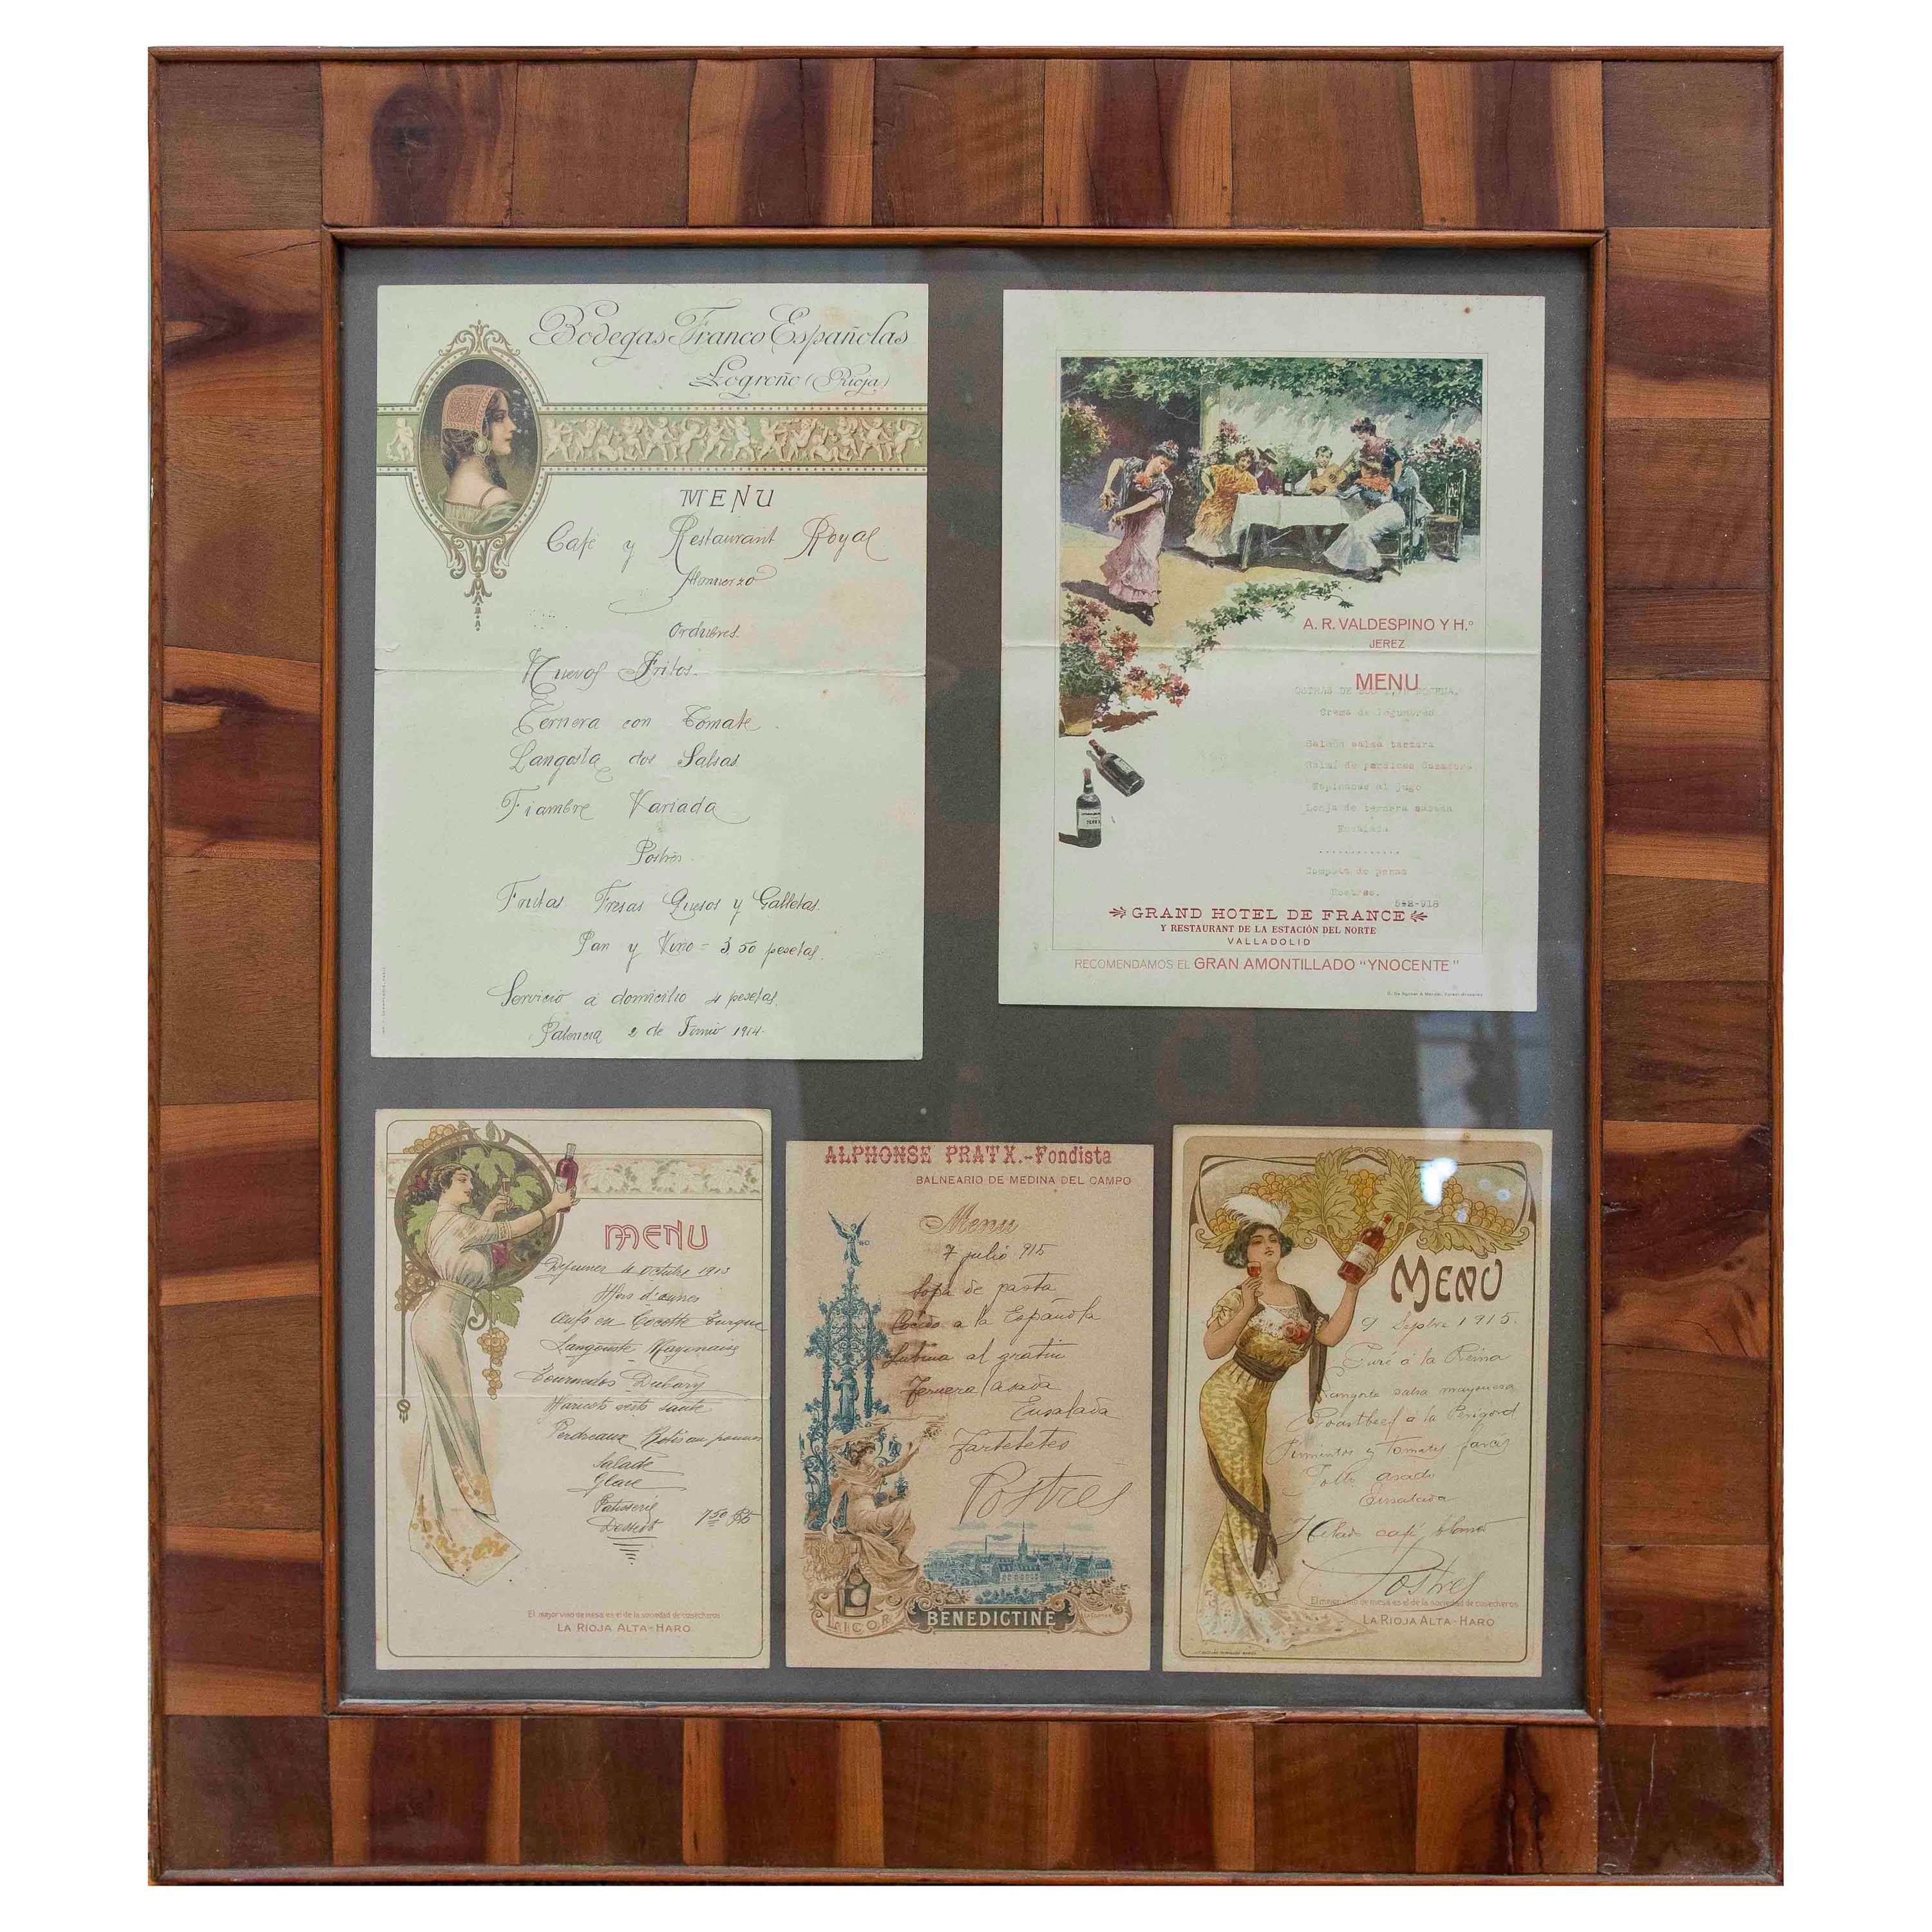 Bodegas Franco Españolas
Logroño (Rioja)
MENU
Cafe y Restaurant Royal
Almuerzo
Ordubres.
Huevos Fritos.
Ternera con Tomate.
Langosta dos Salsas
Fiambre Variada
Postres
Frutas Fresas Quesos y Galletas.
Pan y Vino = 3 50 pesetas.
Servicio á domicilio 4 pesetas.
Palencia 2 de Junio 1914.
A. R. VALDESPINO Y H.º
JEREZ
MENU
OSTRAS DE
Crema de legumbres
Salmon salsa tartara
Salmí de perdices
Espinacas al jugo
Lonja de ternera asada
Ensalada
............
Compota de peras
Postres.
5-2-918
GRAND HOTEL DE FRANCE
Y RESTAURANT DE LA ESTACIÓN DEL NORTE
VALLADOLID
RECOMENDAMOS EL GRAN AMONTILLADO "YNOCENTE"
MENU
Dejeuner 4 Octubre 1913
Hors d'œuvres
Œufs en Cocotte Turque
Langouste Mayonaise
Tournedos Dubarry
Haricots verts sauté
Perdreaux Rotis au
Salade
Glace
Patisserie
Dessert 7.50
El mejor vino de mesa es el de la sociedad de cosecheros
LA RIOJA ALTA-HARO
ALPHONSE PRATX.-Fondista
BALNEARIO DE MEDINA DEL CAMPO
Menu
7 julio 915
Sopa de pasta
Cocido a la Española
Lubina al gratin
Ternera asada
Ensalada
Tarteletes
Postres
LICOR BENEDICTINE
MENU
9 Sepbre 1915.
Puré á la Reina
Langosta salsa mayonesa
Roastbeef á la Perigord
Pimientos y Tomates farcis
Pollo asado
Ensalada
Helado café blanco
Postres
El mejor vino de mesa es el de la sociedad de cosecheros
LA RIOJA ALTA-HARO